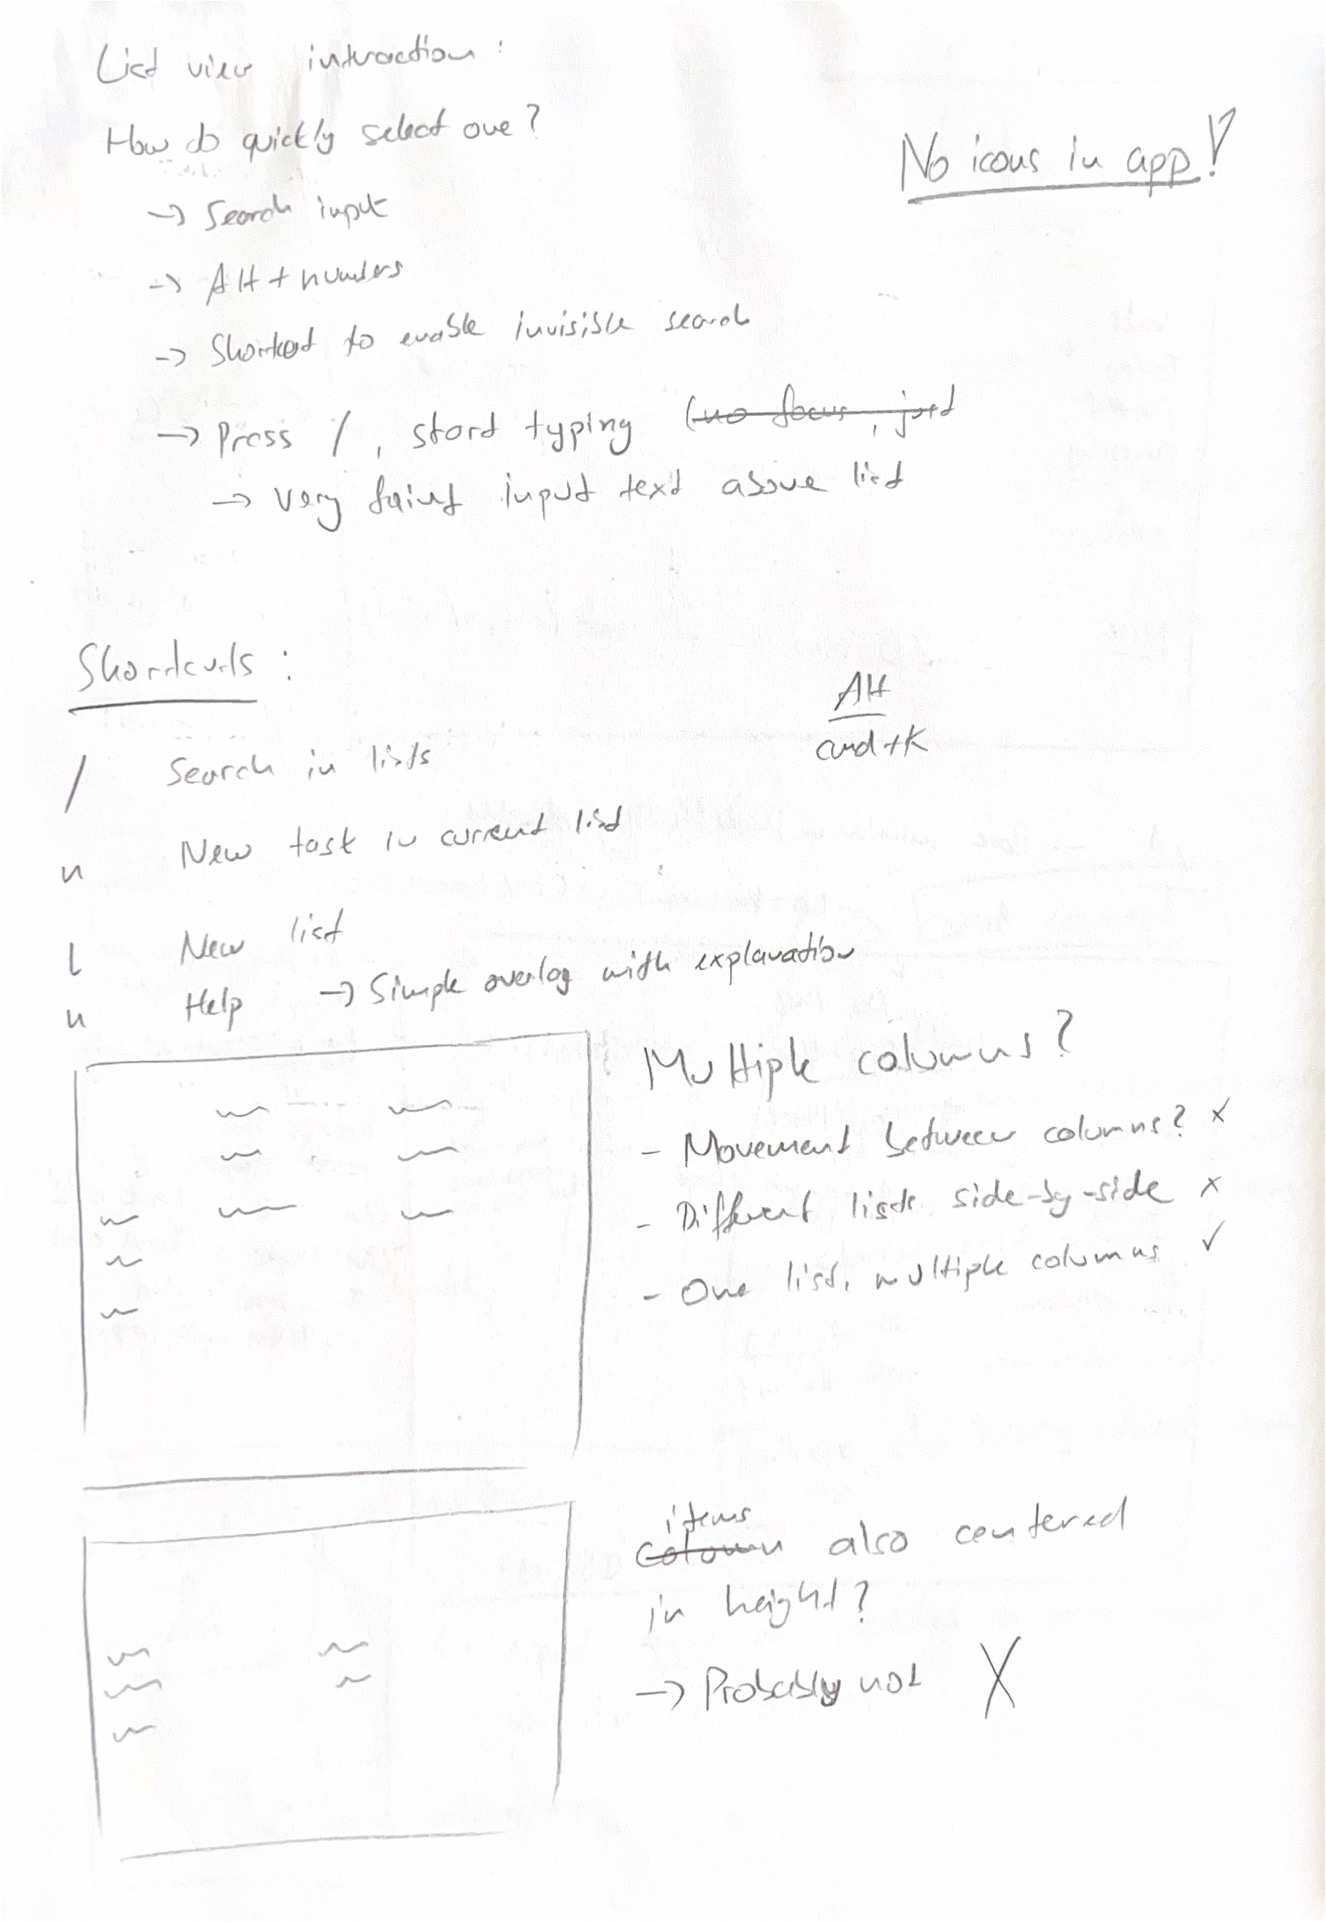 List view interaction:
How do quickly select one?
No icons in app!
→ Search input
→ Alt + numbers
→ Shortcut to enable invisible search
→ Press /, start typing (no focus, just
→ very faint input text above list
Shortcuts:
Alt
cmd+K
/ Search in lists
n New task in current list
l New list
u Help → Simple overlay with explanation
Multiple columns?
- Movement between columns? x
- Different lists side-by-side x
- One list, multiple columns ✓
items
Column also centered
in height?
→ Probably not X